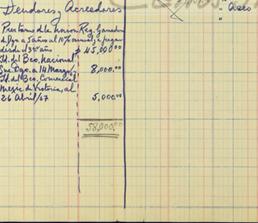 Deudores y Acreedores
Prestamo de la Union Reg. Ganadera
de Dgo a 5 años al 10% anual, a pagar
desde el 3er año $ 45,000.00
Id. del Bco. Nacional
Suc Dgo, a 14 Marzo/ 8,000.00
Id. del Bco. Comercial
Mexic de Victoria, al
26 Abril/67 5,000.00
58,000.00